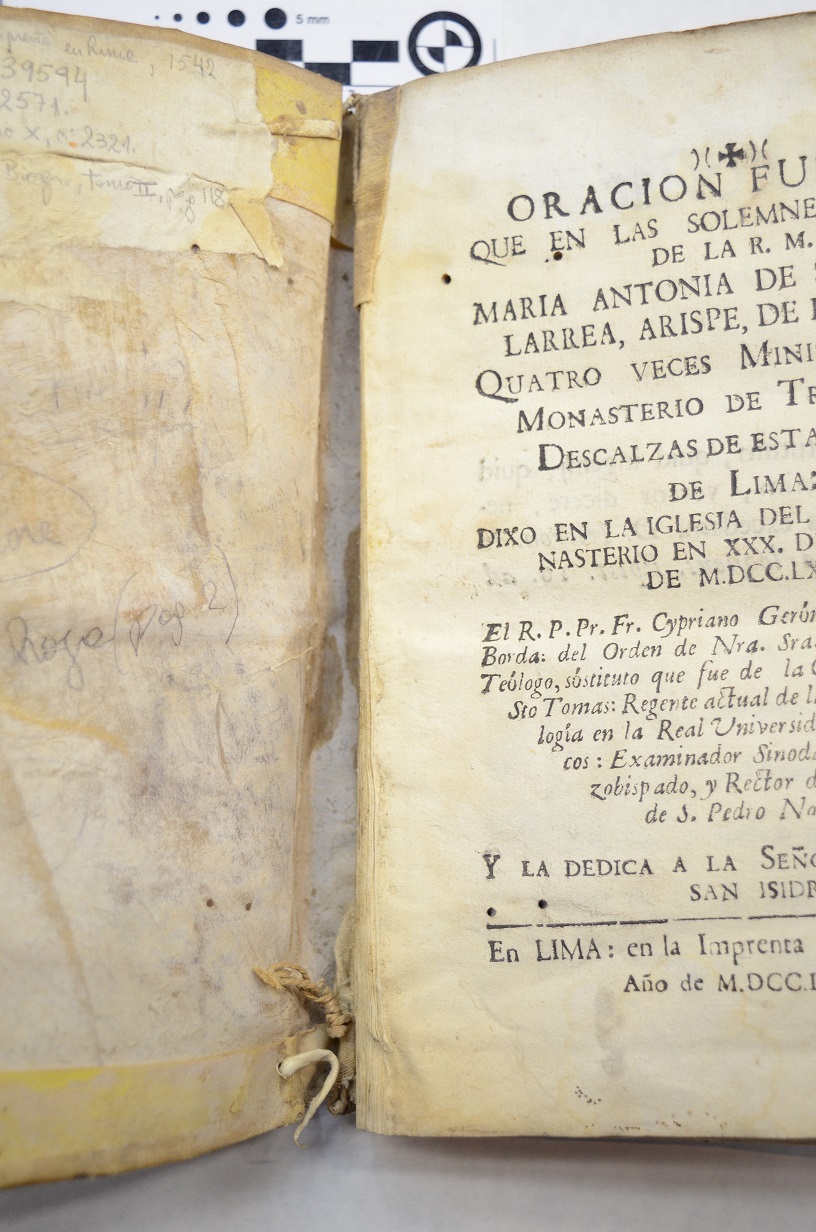 5 mm
en Lima, 1542
39594
2571.
X, nº 2321.
Biogr., tomo II, pág 118
(pag 2)
)(✠)(
ORACION FU
QUE EN LAS SOLEMNE
DE LA R. M.
MARIA ANTONIA DE
LARREA, ARISPE, DE
QUATRO VECES MINI
MONASTERIO DE TR
DESCALZAS DE ESTA
DE LIMA:
DIXO EN LA IGLESIA DEL
NASTERIO EN XXX. D
DE M.DCC.LX
El R. P. Pr. Fr. Cypriano Gerón
Borda: del Orden de Nra. Sra.
Teólogo, sóstituto que fue de la
Sto Tomas: Regente actual de l
logía en la Real Universid
cos: Examinador Sinoda
zobispado, y Rector d
de S. Pedro No
Y LA DEDICA A LA SEÑO
SAN ISIDR
En LIMA: en la Imprenta
Año de M.DCC.L